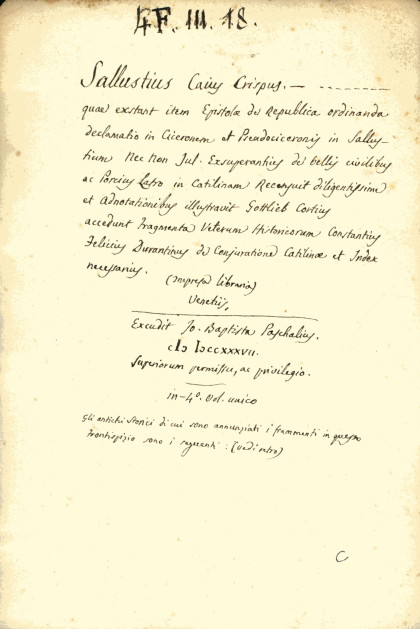 4F. III. 18.
Sallustius Caius Crispus. —
quae exstant item Epistolae de Republica ordinanda
declamatio in Ciceronem et Pseudociceronis in Sallus-
tium Nec Non Jul. Exsuperantius de bellis civilibus
ac Porcius Latro in Catilinam Recensuit diligentissime
et Adnotationibus illustravit Gottlieb Cortius
accedunt Fragmenta Veterum Historicorum Constantius
Felicius Durantinus de Conjuratione Catilinae et Index
necessarius.
(Impresa libraria)
Venetiis,
Excudit Jo. Baptista Paschalius.
cIɔ IɔCCXXXVII.
Superiorum permissu, ac privilegio.
in-4º. Vol. unico
Gli antichi Storici di cui sono annunziati i frammenti in questo
frontispizio sono i seguenti: (vedi retro)
C